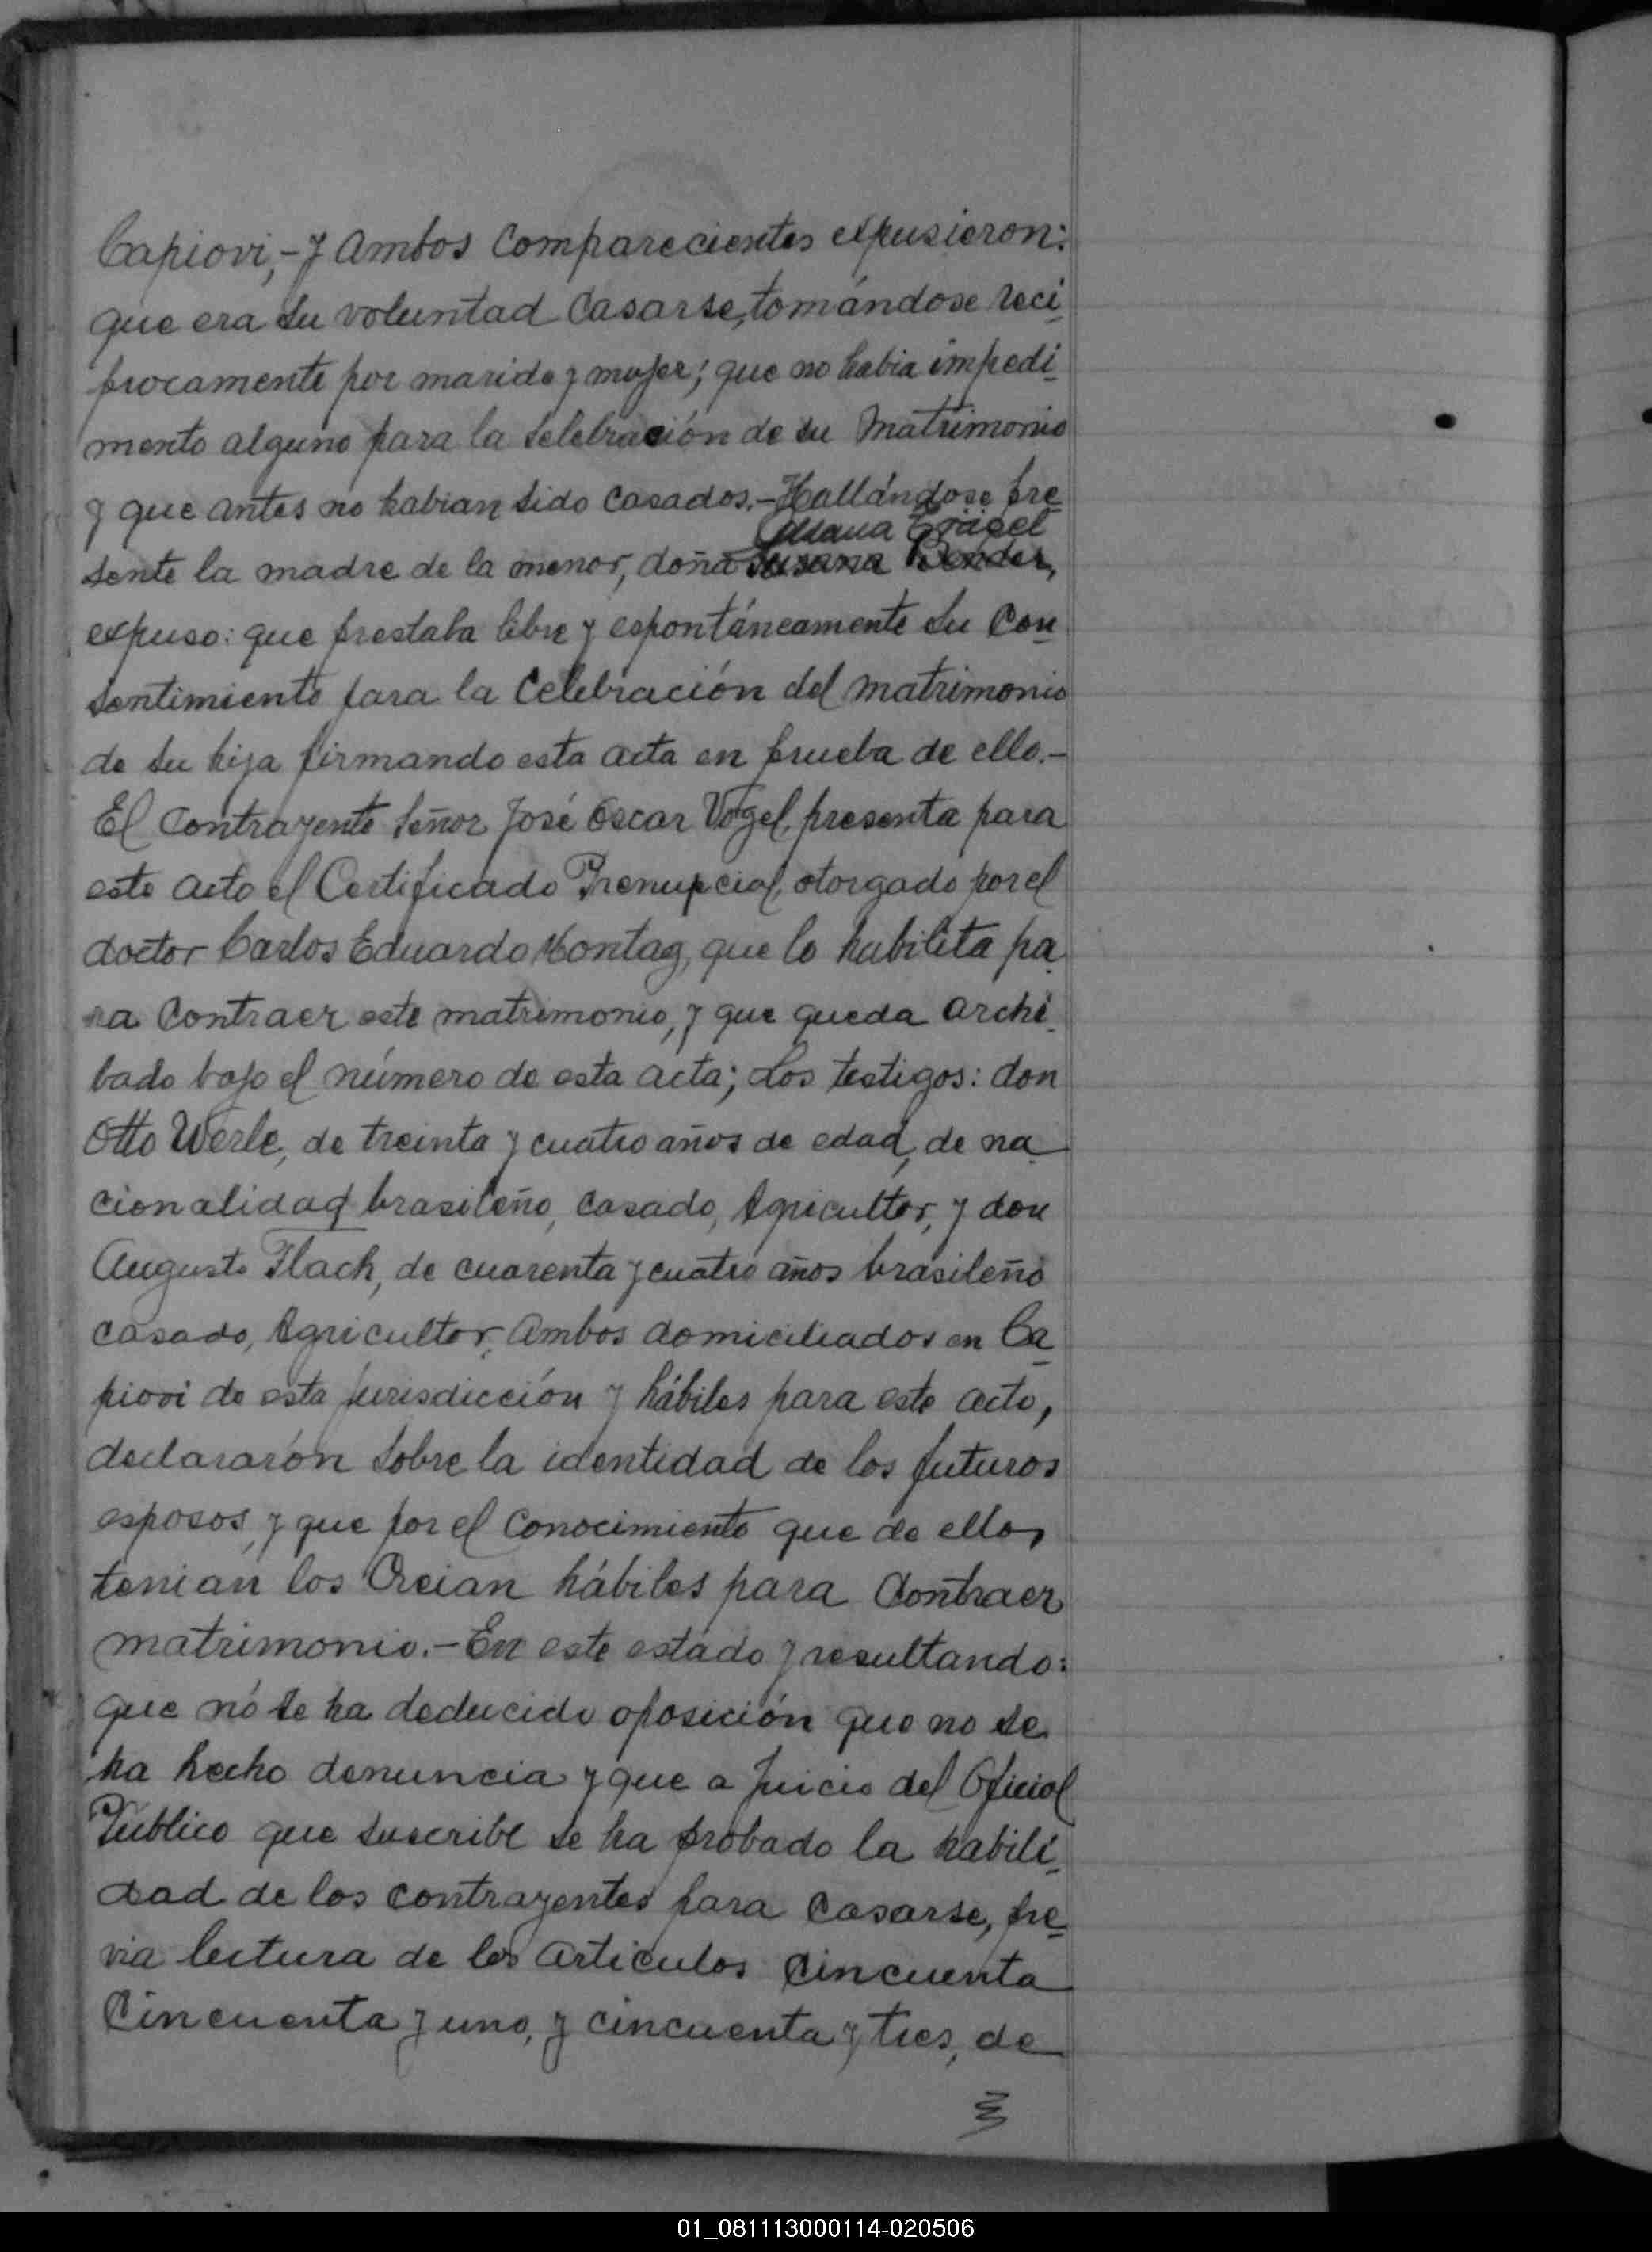 Capiovi,- y ambos comparecientes expusieron:
que era su voluntad casarse, tomándose reci-
procamente por marido y mujer; que no habia impedi-
mento alguno para la selebración de su matrimonio
y que antes no habian sido casados.- Hallándose pre-
sente la madre de la menor, doña Susana Bender,
expuso: que prestaba libre y espontáneamente su con-
sentimiento para la celebración del matrimonio
de su hija firmando esta acta en prueba de ello.-
El contrayente señor José Oscar Vogel, presenta para
este acto el Certificado Prenupcial, otorgado por el
doctor Carlos Eduardo Montag, que lo habilita pa-
ra contraer este matrimonio, y que queda archi-
bado bajo el número de esta acta; Los testigos: don
Otto Werle, de treinta y cuatro años de edad, de na-
cionalidad brasileño, casado, Agricultor, y don
Augusto Flach, de cuarenta y cuatro años brasileño
casado, Agricultor, ambos domiciliados en Ca-
piovi de esta jurisdicción y hábiles para este acto,
declararón sobre la identidad de los futuros
esposos, y que por el conocimiento que de ellos
tenian los creian hábiles para contraer
matrimonio.- En este estado y resultando:
que nó se ha deducido oposición que no se
ha hecho denuncia y que a juicio del Oficial
Público que suscribe se ha probado la habili-
dad de los contrayentes para casarse, pre-
via lectura de los articulos cincuenta
cincuenta y uno, y cincuenta y tres, de
01_081113000114-020506